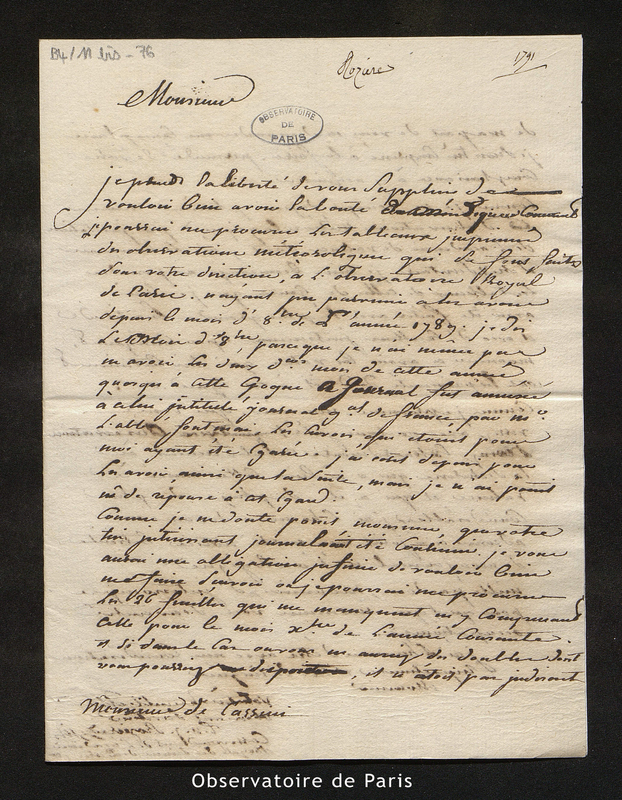 B4/11 bis - 76
Rozière
1791
Monsieur
OBSERVATOIRE
DE
PARIS
je prends la liberté de vous Supplier de
vouloir bien avoir la bonté
me procurer les tableaux imprimés
des observations météorologiques qui se font faites
sous votre direction, à l'observatoire Royal
de Paris. n'ayant pu parvenir à les avoir
depuis le mois d' 8.bre de l'année 1789. je dis
le mois d' 8bre, parceque je n'ai même pas
les deux mois de cette année
quoiqu'à cette Epoque ce Journal fut annexé
à celui intitulé journal gal de france, par mr.
L'abbé fontenai. les envois qui étoient pour
moi ayant été Egarés. j'ai écrit depuis pour
les avoir, ainsi que la suite, mais je n'ai point
eû de réponse à cet Egard
Comme je ne doute point monsieur, que votre
très intéressant journal n'ait été Continué. je vous
aurai une obligation infinie de vouloir bien
me faire me procurer
les 26 feuilles qui me manquent en y Comprenant
celle pour le mois xbre de l'année Courante.
et si dans le cas ou vous en auriez des doubles dont
vous pourriez disposer, il n'étoit pas indécent
Monsieur de Cassini
Observatoire de Paris